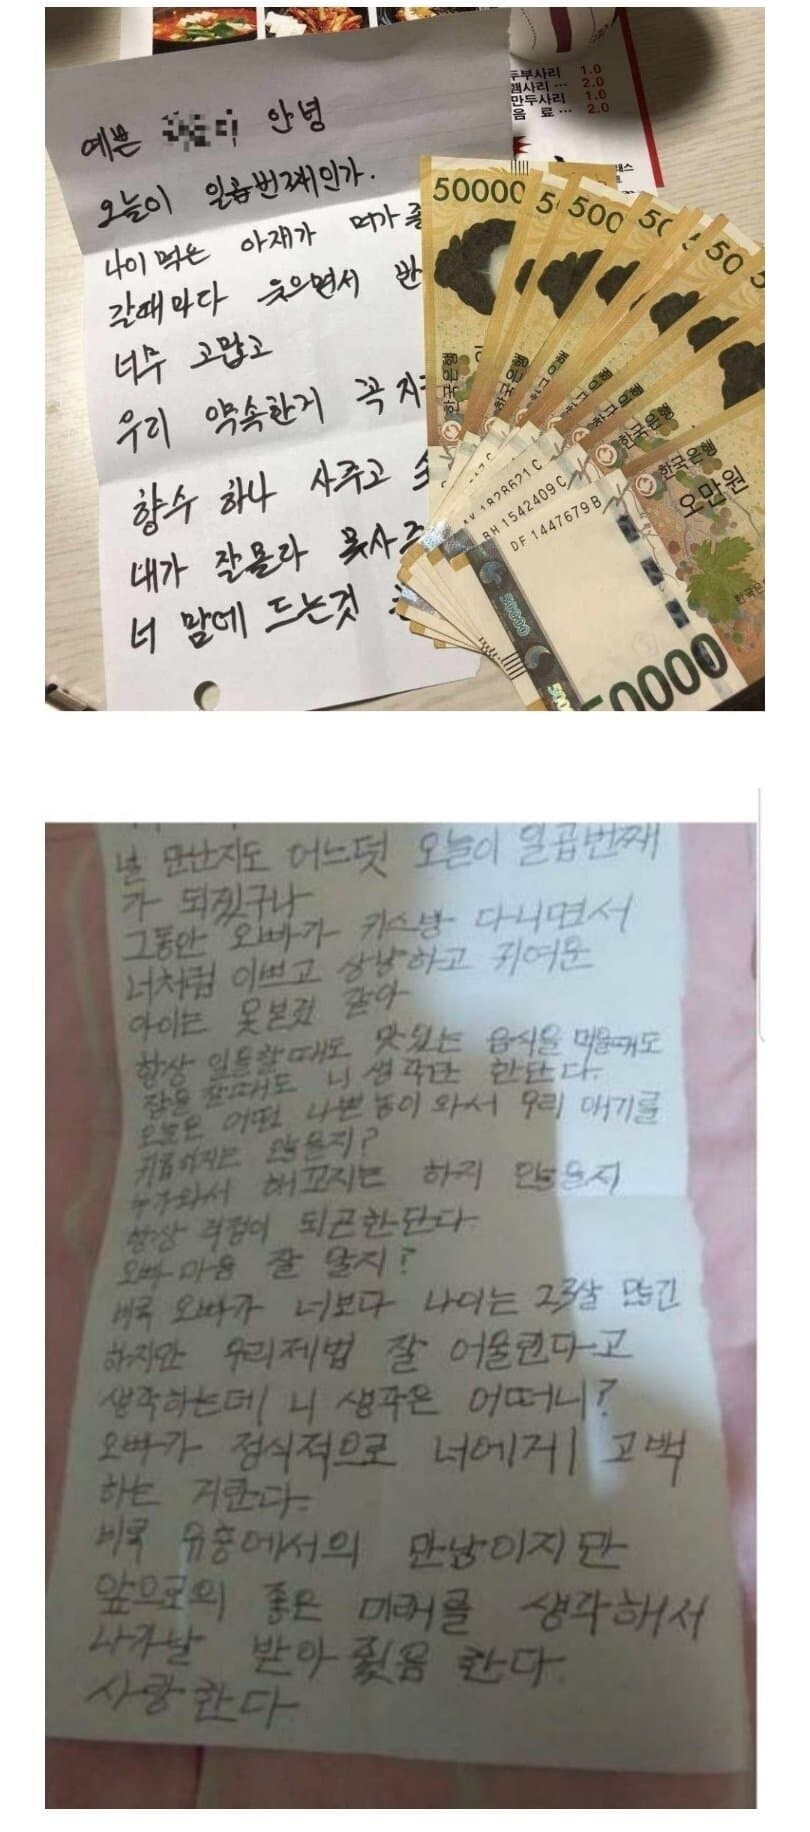 두부사리 1.0
햄사리 ... 2.0
만두사리 1.0
음 료 ... 2.0
예쁜 안녕
오늘이 일곱번째인가.
나이먹은 아재가 뭐가 좋
갈때마다 웃으면서 반
너무 고맙고
우리 약속한거 꼭 지
향수 하나 사주고
내가 잘몰라 못사주
너 맘에 드는것
50000
50000
한국은행
한국은행
한국은행
한국은행
한국은행
오만원
BH 1542409 C
DF 1447679 B
50000
50000
널 만난지도 어느덧 오늘이 일곱번째
가 되겠구나
그동안 오빠가 키스방 다니면서
너처럼 이쁘고 상냥하고 귀여운
아이는 못본것 같아
항상 일을할때도 맛있는 음식을 먹을때도
잠을 잘때도 니 생각만 한단다.
오늘은 어떤 나쁜놈이 와서 우리 애기를
괴롭히지는 않을지?
와서 해꼬지는 하지 않을지
항상 걱정이 되곤한단다
오빠 마음 잘 알지?
비록 오빠가 너보다 나이는 23살 많긴
하지만 우리제법 잘 어울린다고
생각하는데 니 생각은 어떠니?
오빠가 정식적으로 너에게 고백
하는 거란다.
비록 유흥에서의 만남이지만
앞으로의 좋은 미래를 생각해서
나가날 받아줬음 한다.
사랑한다